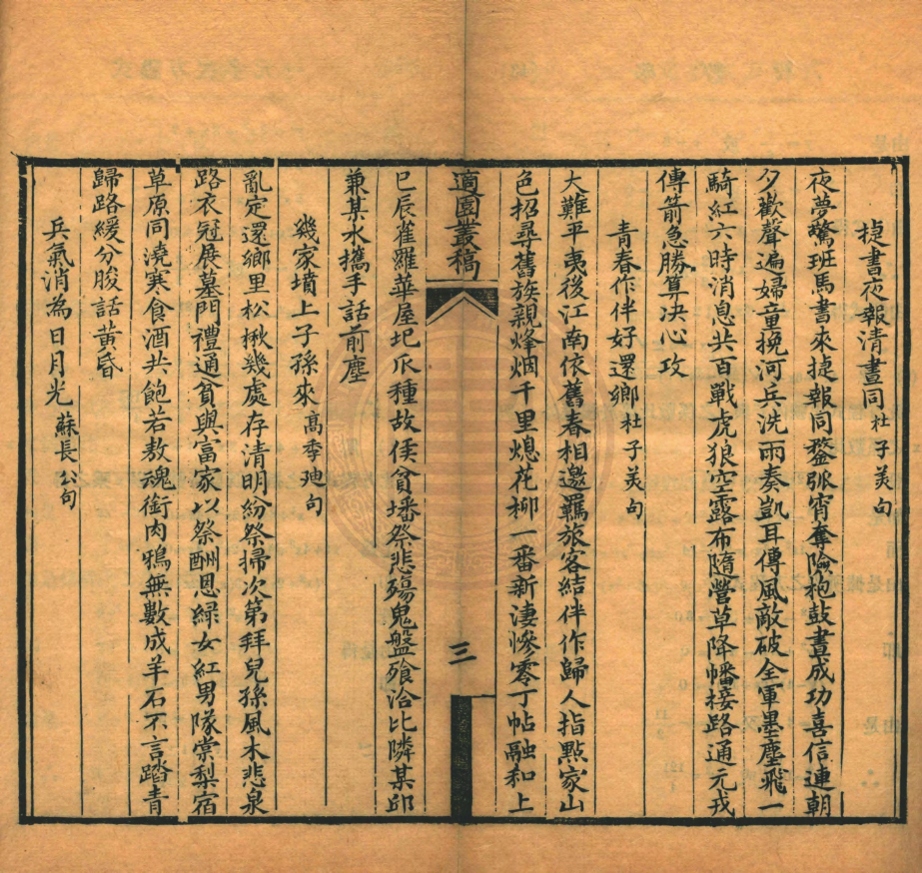 捷書夜報清晝同杜子美句
夜夢驚班馬書來捷報同螯弧宵奪險枹鼓晝成功喜信連朝
夕歡聲遍婦童挽河兵洗雨奏凱耳傳風敵破全軍墨塵飛一
騎紅六時消息共百戰虎狼空露布隨營草降幡接路通元戎
傳箭急勝算决心攻
青春作伴好還鄉杜子美句
大難平夷後江南依舊春相邀羈旅客結伴作歸人指點家山
色招尋舊族親烽烟千里熄花柳一番新淒慘零丁帖融和上
適園叢稿
三
巳辰雀羅華屋圮瓜種故侯貧墦祭悲殤鬼盤飱洽比隣某邱
兼某水攜手話前塵
幾家墳上子孫來高季廸句
亂定還鄉里松楸幾處存清明紛祭掃次第拜兒孫風木悲泉
路衣冠展墓門禮通貧與富家以祭酬恩緑女紅男隊棠梨宿
草原同澆寒食酒共飽若敖魂銜肉鴉無數成羊石不言踏青
歸路緩分胙話黄昏
兵氣消為日月光蘇長公句